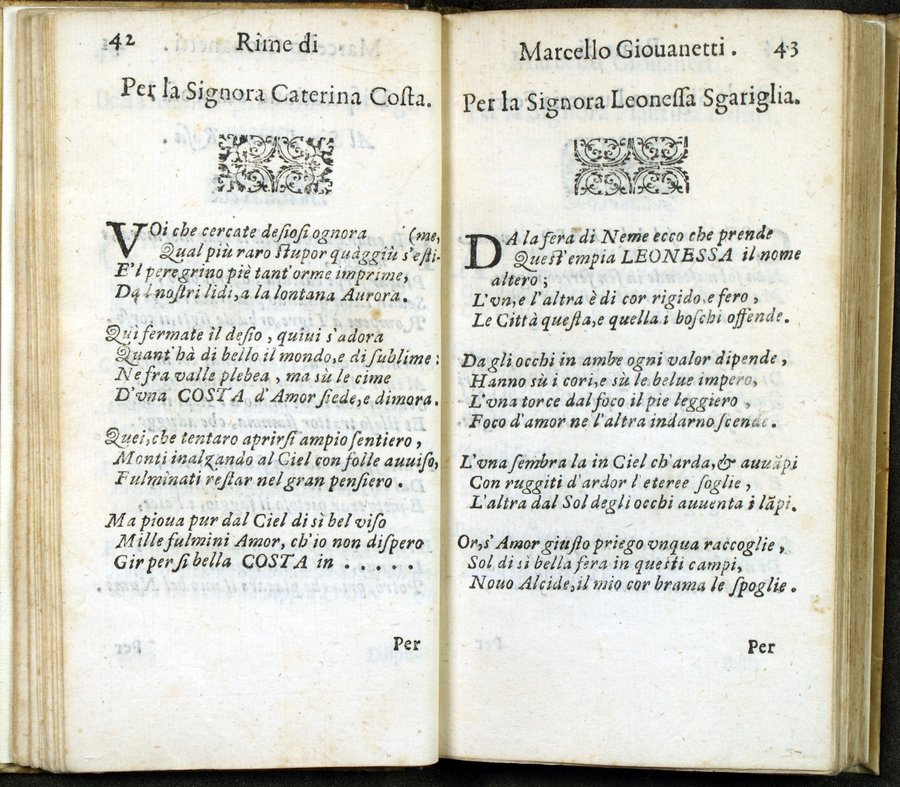 42 Rime di
Per la Signora Caterina Costa.
VOi che cercate desiosi ognora (me,
Qual più raro stupor quaggiù s'esti-
E'l peregrino piè tant'orme imprime,
Dal nostri lidi, a la lontana Aurora.
Qui fermate il desio, quiui s'adora
Quant'hà di bello il mondo, e di sublime:
Ne fra valle plebea, ma sù le cime
D'vna COSTA d'Amor siede, e dimora.
Quei, che tentaro aprirsi ampio sentiero,
Monti inalzando al Ciel con folle auuiso,
Fulminati restar nel gran pensiero.
Ma pioua pur dal Ciel di sì bel viso
Mille fulmini Amor, ch'io non dispero
Gir per si bella COSTA in . . . . .
Per
Marcello Giouanetti. 43
Per la Signora Leonessa Sgariglia.
DA la fera di Neme ecco che prende
Quest'empia LEONESSA il nome
altero;
L'vn, e l'altra è di cor rigido, e fero,
Le Città questa, e quella i boschi offende.
Da gli occhi in ambe ogni valor dipende,
Hanno sù i cori, e sù le belue impero,
L'vna torce dal foco il pie leggiero,
Foco d'amor ne l'altra indarno scende.
L'vna sembra la in Ciel ch'arda, & auuãpi
Con ruggiti d'ardor l'eteree soglie,
L'altra dal Sol degli occhi auuenta i lãpi.
Or, s'Amor giusto priego vnqua raccoglie,
Sol, di si bella fera in questi campi,
Nouo Alcide, il mio cor brama le spoglie.
Per